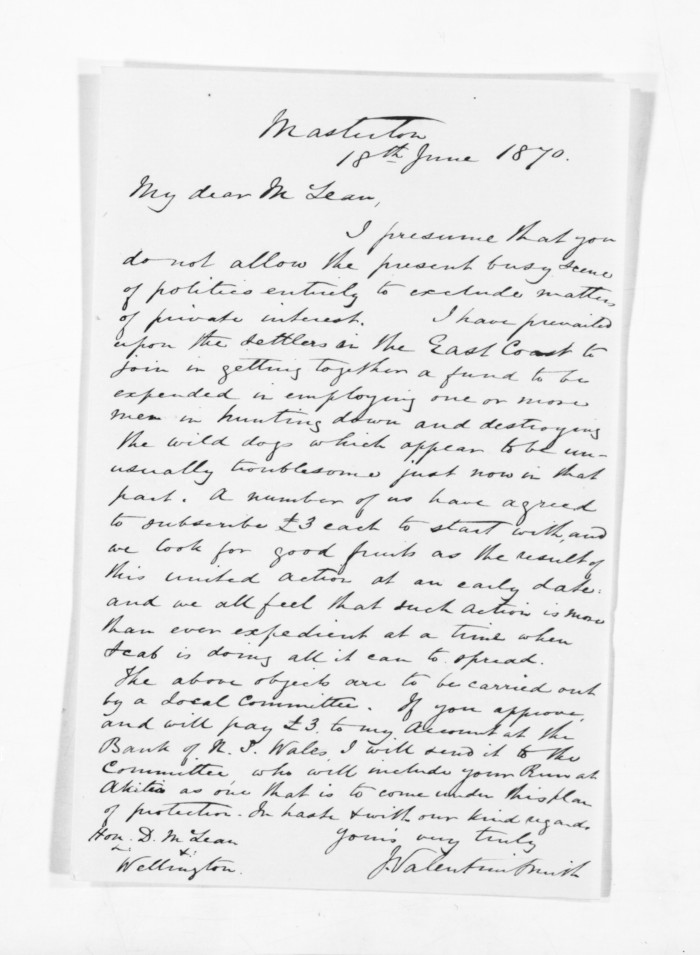 Masterton
18th June 1870.
My dear McLean,
I presume that you
do not allow the present busy scene
of politics entirely to exclude matters
of private interest. I have prevailed
upon the settlers in the East Coast to
join in getting together a fund to be
expended in employing one or more
men in hunting down and destroying
the wild dogs which appear to be un-
usually troublesome just now in that
part. A number of us have agreed
to subscribe £3 each to start with, and
we look for good fruits as the result of
this united action at an early date:
and we all feel that such action is more
than ever expedient at a time when
Scab is doing all it can to spread.
The above objects are to be carried out
by a Local Committee. If you approve,
and will pay £3. to my Account at the
Bank of N. S. Wales, I will send it to the
Committee, who will include your Run at
Akitio as one that is to come under this plan
of protection. In haste & with our kind regards
Yours very truly
J Valentine Smith
Hon. D. McLean
Wellington.